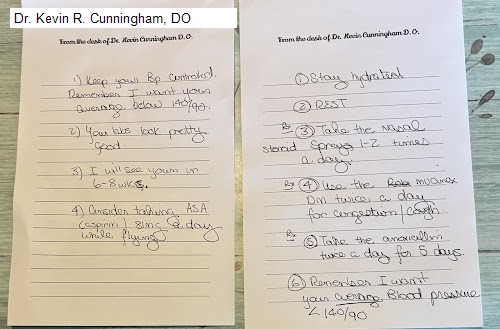 Dr. Kevin R. Cunningham, DO
From the desk of Dr. Kevin Cunningham D.O.
1) Keep your Bp controlled.
Remember I want your
average below 140/90.
2) Your labs look pretty
good
3) I will see you in
6-8 wks.
4) Consider taking ASA
(aspirin) 81mg a day
while flying
From the desk of Dr. Kevin Cunningham D.O.
① Stay hydrated
② REST
Rx ③ Take the nasal
steroid sprays 1-2 times
a day.
Rx ④ Use the mucinex
Dm twice a day
for congestion/cough
Rx ⑤ Take the amoxicillin
twice a day for 5 days.
⑥ Remember I want
your average Blood pressure
< 140/90